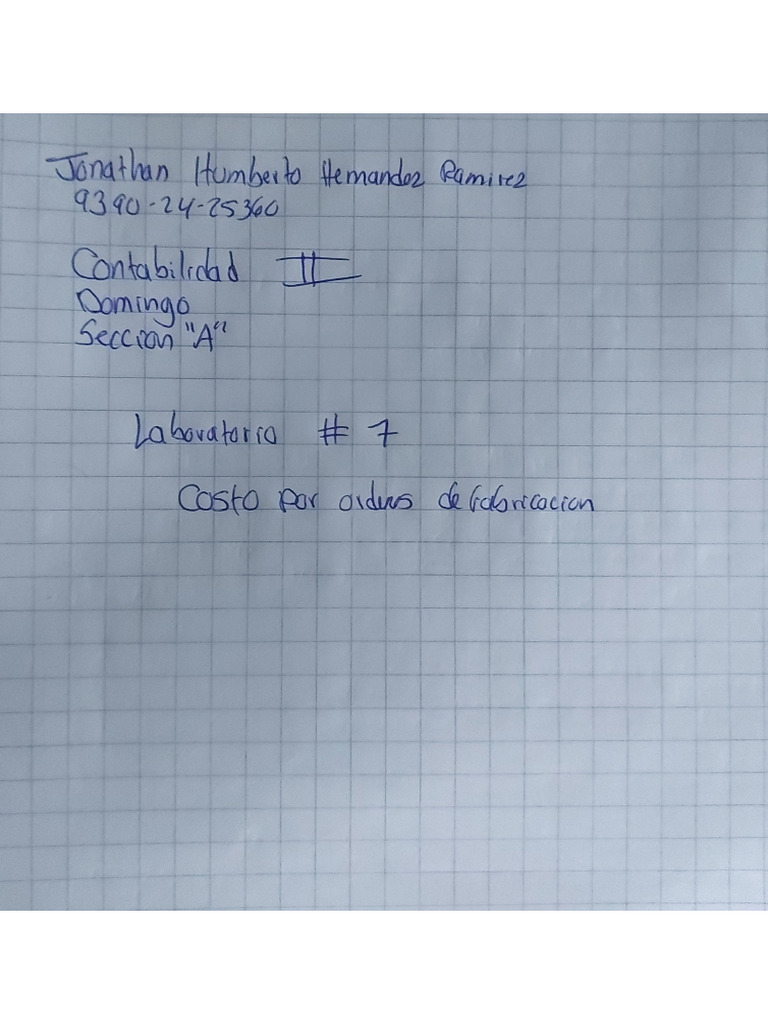 Jonathan Humberto Hernandez Ramirez
9390-24-25360
Contabilidad II
Domingo
Seccion "A"
Laboratorio # 7
Costo por ordenes de fabricacion